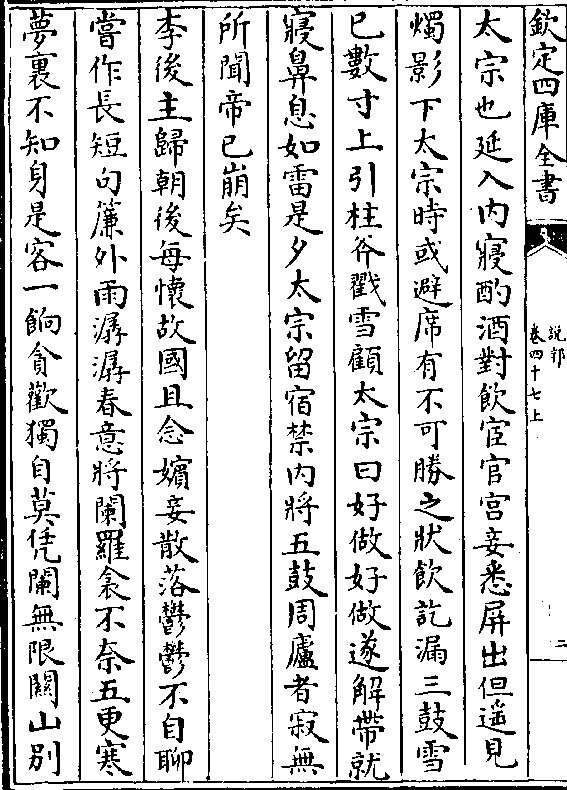 欽定四庫全書
說郛
卷四十七上
二
太宗也延入内寢酌酒對飲宦官宫妾悉屏出但遥見
燭影下太宗時或避席有不可勝之狀飲訖漏三鼓雪
已數寸上引柱斧戳雪顧太宗曰好做好做遂解帶就
寢鼻息如雷是夕太宗留宿禁内將五鼓周廬者寂無
所聞帝已崩矣
李後主歸朝後每懷故國且念嬪妾散落鬱鬱不自聊
嘗作長短句簾外雨潺潺春意將闌羅衾不奈五更寒
夢裏不知身是客一餉貪歡獨自莫凭闌無限關山别